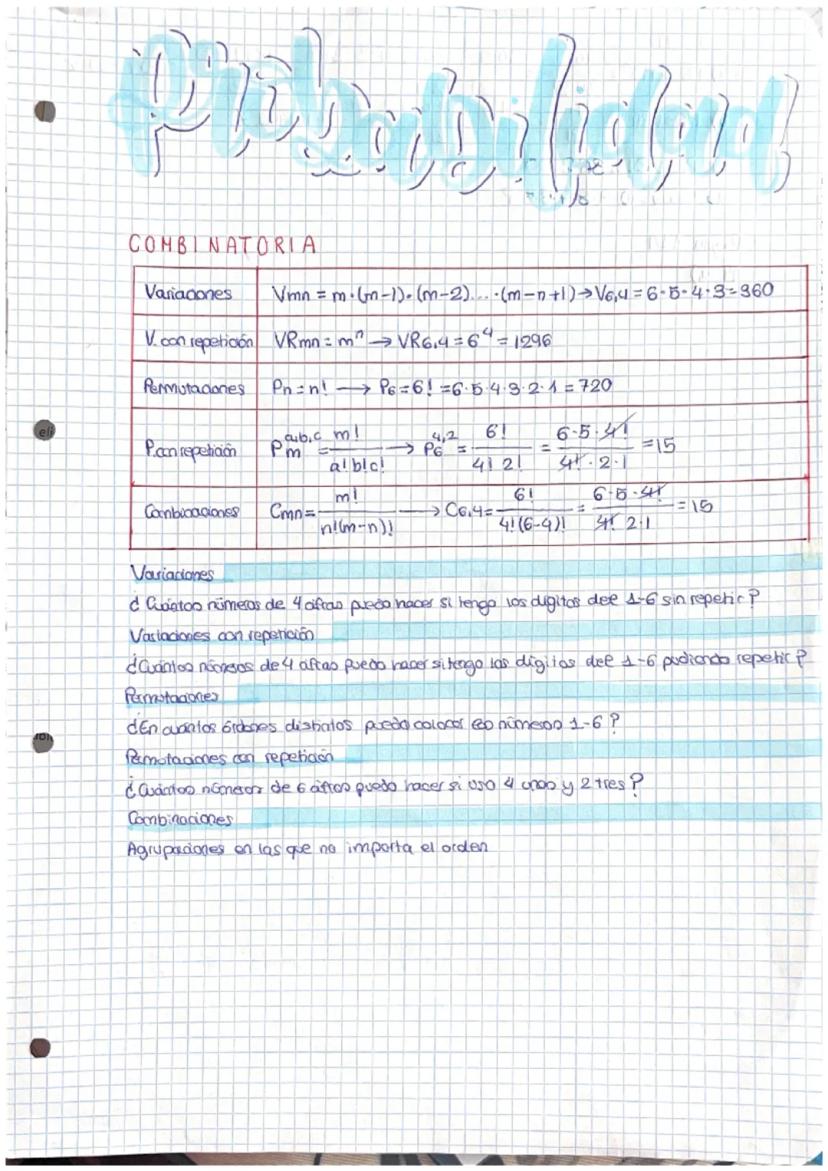 probabilidad
COMBINATORIA
Variaciones Vmn = m·(m-1)·(m-2)...·(m-n+1)→V6,4 = 6·5·4·3=360
V. con repetición VRmn = mⁿ → VR6,4 = 6⁴ = 1296
Permutaciones Pn = n! → P6 = 6! = 6·5·4·3·2·1 = 720
P. con repetición Pm^a,b,c = m!/a!b!c! → P6^4,2 = 6!/4! 2! = 6·5·4!/4!·2·1 = 15
Combinaciones Cmn = m!/n!(m-n)! → C6,4 = 6!/4!(6-4)! = 6·5·4!/4! 2·1 = 15
Variaciones
¿Cuántos números de 4 cifras puedo hacer si tengo los dígitos del 1-6 sin repetir?
Variaciones con repetición
¿Cuántos números de 4 cifras puedo hacer si tengo los dígitos del 1-6 pudiendo repetir?
Permutaciones
¿En cuántos órdenes distintos puedo colocar los números 1-6?
Permutaciones con repetición
¿Cuántos números de 6 cifras puedo hacer si uso 4 unos y 2 tres?
Combinaciones
Agrupaciones en las que no importa el orden